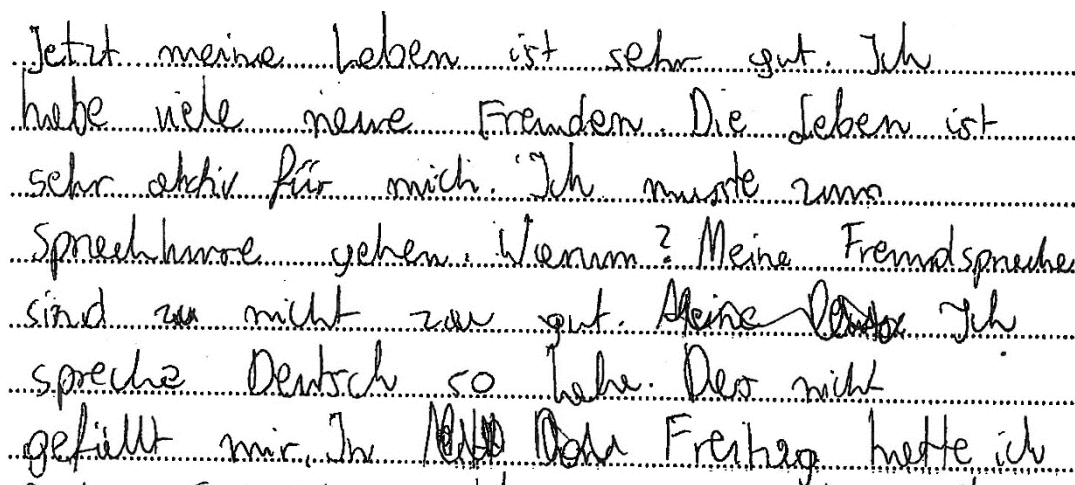 Jetzt meine Leben ist sehr gut. Ich
habe viele neue Freunden. Die Leben ist
sehr aktiv für mich. Ich musste zum
gehen. Warum? Meine Fremdsprache
sind zu nicht zu gut. Ich
spreche Deutsch so. Das nicht
gefällt mir. In Freitag hatte ich